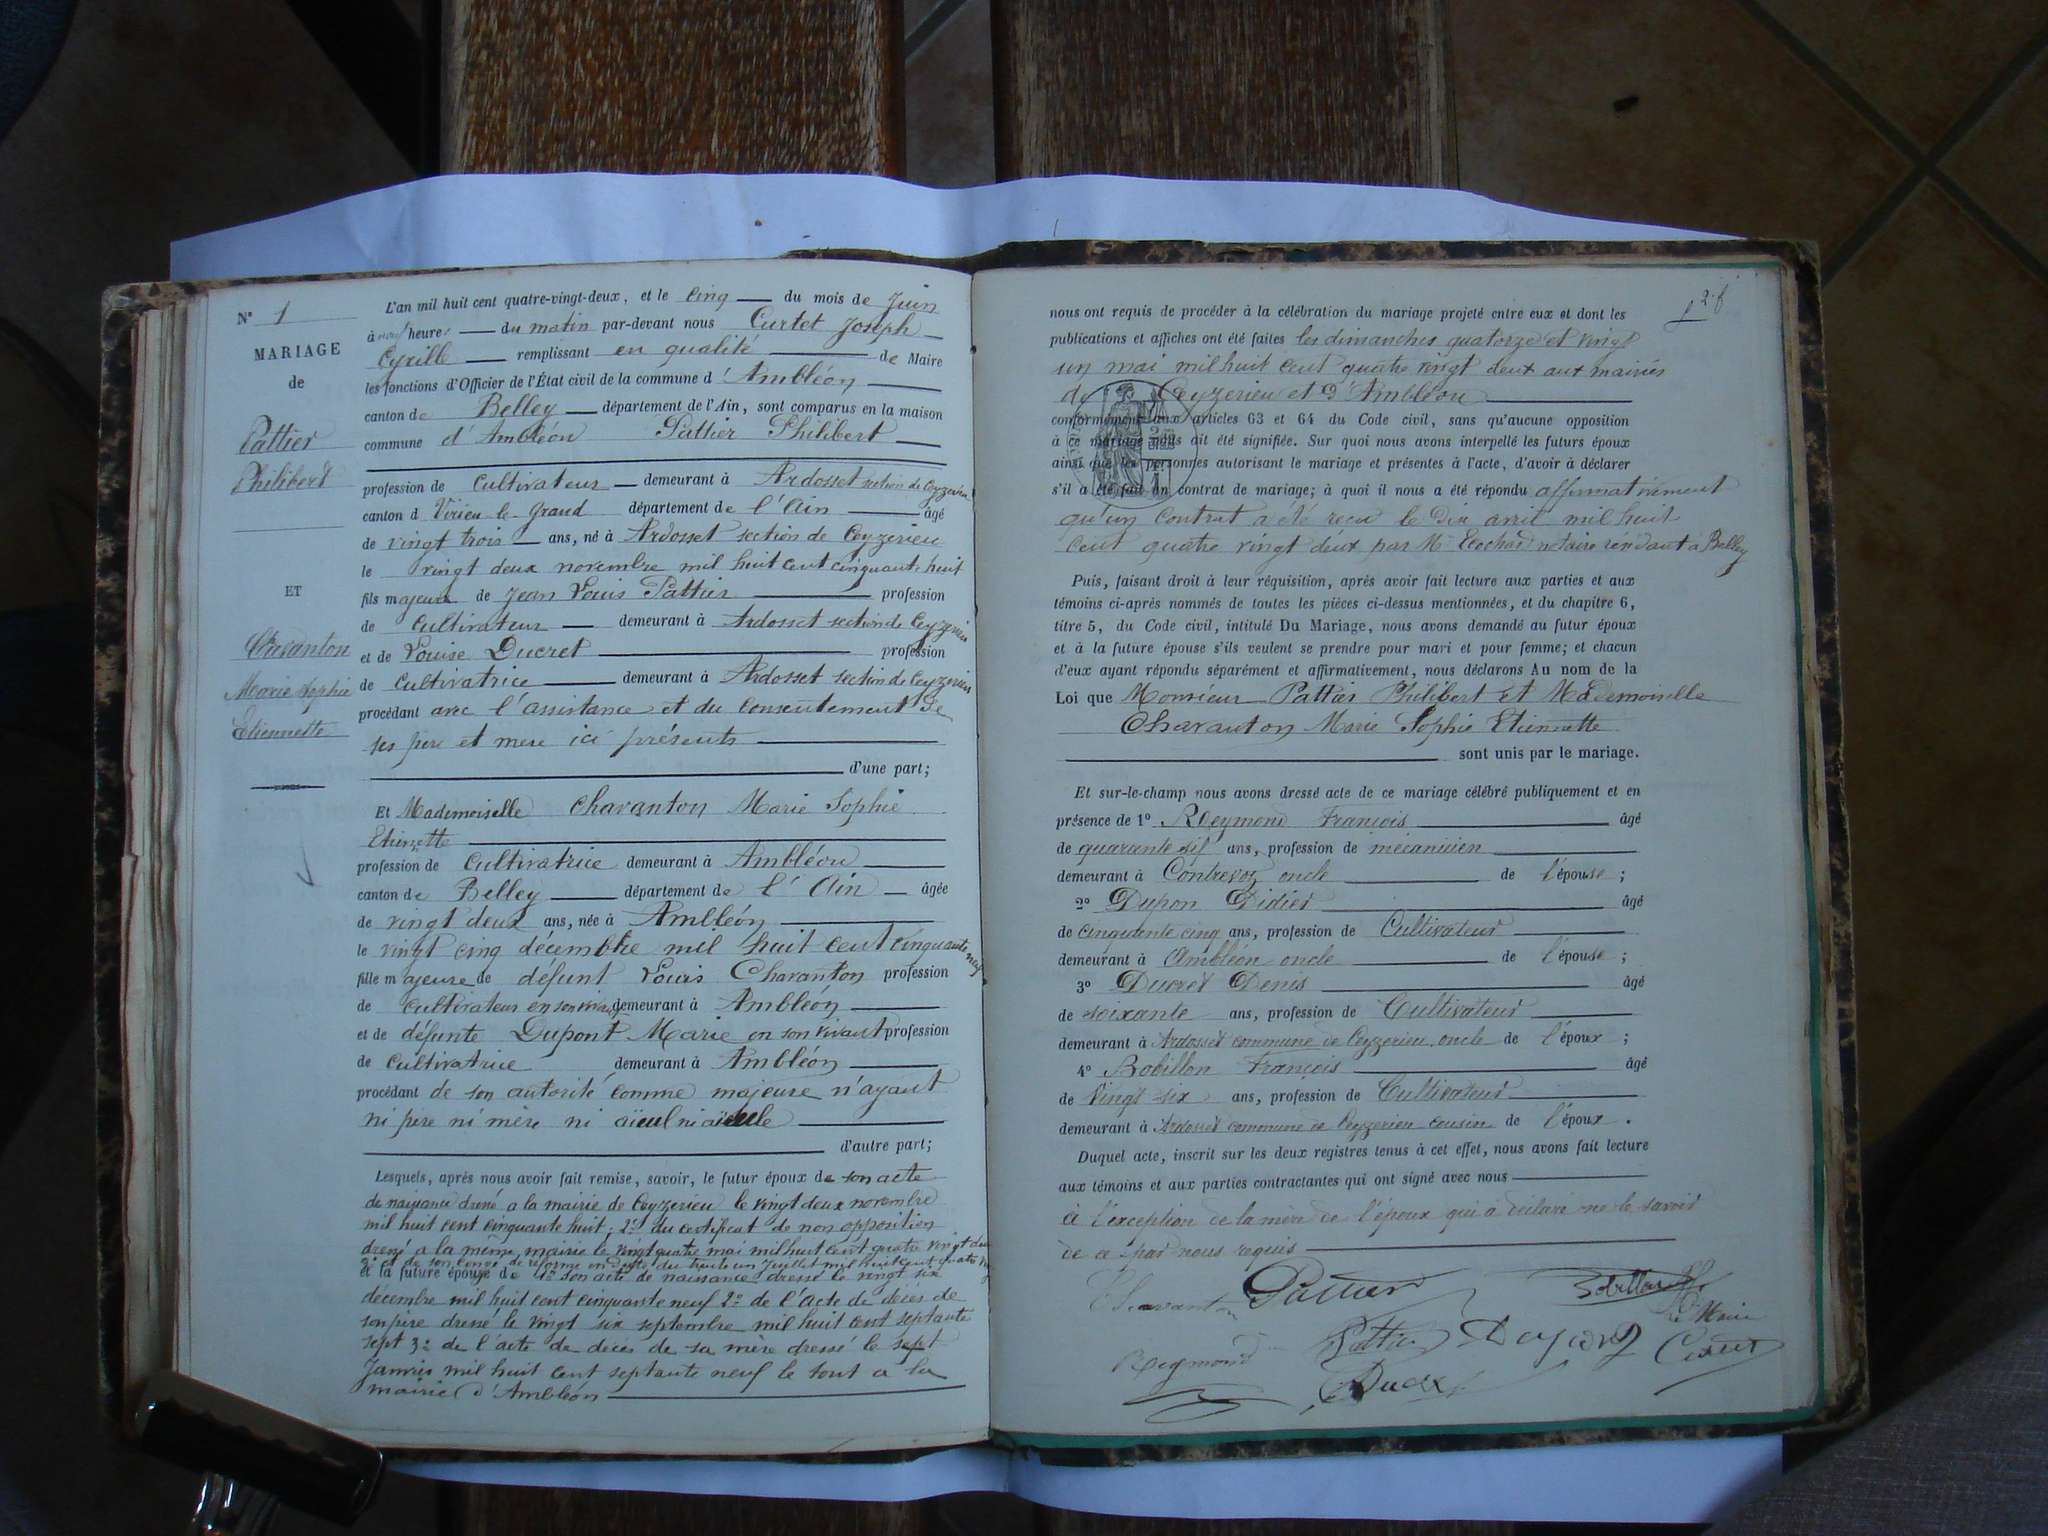 N° 1
MARIAGE
de
Pattier
Philibert
ET
Chavanton
Marie Sophie
Etiennette
L'an mil huit cent quatre-vingt-deux, et le cinq du mois de Juin
à neuf heures du matin par-devant nous Curtet Joseph
Cyrille remplissant en qualité de Maire
les fonctions d'Officier de l'État civil de la commune d'Ambléon
canton de Belley département de l'Ain, sont comparus en la maison
commune d'Ambléon Pattier Philibert
profession de Cultivateur demeurant à Ardosset section de Ceyzerieu
canton d Virieu-le-Grand département de l'Ain âgé
de vingt trois ans, né à Ardosset section de Ceyzerieu
le vingt deux novembre mil huit cent cinquante huit
fils majeur de Jean Louis Pattier profession
de Cultivateur demeurant à Ardosset section de Ceyzerieu
et de Louise Ducret profession
de Cultivatrice demeurant à Ardosset section de Ceyzerieu
procédant avec l'assistance et du consentement de
ses père et mère ici présents
d'une part;
Et Mademoiselle Chavanton Marie Sophie
Etiennette
profession de Cultivatrice demeurant à Ambléon
canton de Belley département de l'Ain âgée
de vingt deux ans, née à Ambléon
le vingt cinq décembre mil huit cent cinquante neuf
fille majeure de défunt Louis Chavanton profession
de Cultivateur en son vivant demeurant à Ambléon
et de défunte Dupont Marie en son vivant profession
de Cultivatrice demeurant à Ambléon
procédant de son autorité comme majeure n'ayant
ni père ni mère ni aïeul ni aïeule
d'autre part;
Lesquels, après nous avoir fait remise, savoir, le futur époux de son acte
de naissance dressé a la mairie de Ceyzerieu le vingt deux novembre
mil huit cent cinquante huit; 2° du certificat de non opposition
dressé a la même mairie le vingt quatre mai mil huit cent quatre vingt deux
3° et de son congé de réforme en date du trente un Juillet mil huit cent quatre vingt
et la future épouse de 1° son acte de naissance dressé le vingt six
décembre mil huit cent cinquante neuf 2° de l'acte de décès de
son père dressé le vingt six septembre mil huit cent septante
sept 3° de l'acte de décès de sa mère dressé le sept
Janvier mil huit cent septante neuf le tout a la
mairie d'Ambléon
nous ont requis de procéder à la célébration du mariage projeté entre eux et dont les
publications et affiches ont été faites les dimanches quatorze et vingt
un mai mil huit cent quatre vingt deux aux mairies
de Ceyzerieu et d'Ambléon
conformément aux articles 63 et 64 du Code civil, sans qu'aucune opposition
à ce mariage nous ait été signifiée. Sur quoi nous avons interpellé les futurs époux
ainsi que les personnes autorisant le mariage et présentes à l'acte, d'avoir à déclarer
s'il a été fait un contrat de mariage; à quoi il nous a été répondu affirmativement
qu'un contrat a été recu le dix avril mil huit
cent quatre vingt deux par Mᵉ notaire résidant à Belley
Puis, faisant droit à leur réquisition, après avoir fait lecture aux parties et aux
témoins ci-après nommés de toutes les pièces ci-dessus mentionnées, et du chapitre 6,
titre 5, du Code civil, intitulé Du Mariage, nous avons demandé au futur époux
et à la future épouse s'ils veulent se prendre pour mari et pour femme; et chacun
d'eux ayant répondu séparément et affirmativement, nous déclarons Au nom de la
Loi que Monsieur Pattier Philibert et Mademoiselle
Chavanton Marie Sophie Etiennette
sont unis par le mariage.
Et sur-le-champ nous avons dressé acte de ce mariage célébré publiquement et en
présence de 1° Reymond François âgé
de quarante six ans, profession de mécanicien
demeurant à Contrevoz oncle de l'épouse;
2° Dupon Didier âgé
de cinquante cinq ans, profession de Cultivateur
demeurant à Ambléon oncle de l'épouse;
3° Ducret Denis âgé
de soixante ans, profession de Cultivateur
demeurant à Ardosset commune de Ceyzerieu oncle de l'époux;
4° Bobillon François âgé
de vingt six ans, profession de Cultivateur
demeurant à Ardosset commune de Ceyzerieu cousin de l'époux.
Duquel acte, inscrit sur les deux registres tenus à cet effet, nous avons fait lecture
aux témoins et aux parties contractantes qui ont signé avec nous
à l'exception de la mère de l'époux qui a déclaré ne le savoir
de ce par nous requis
Chavanton Pattier Bobillon
Le Maire
Reymond Pattier Curtet